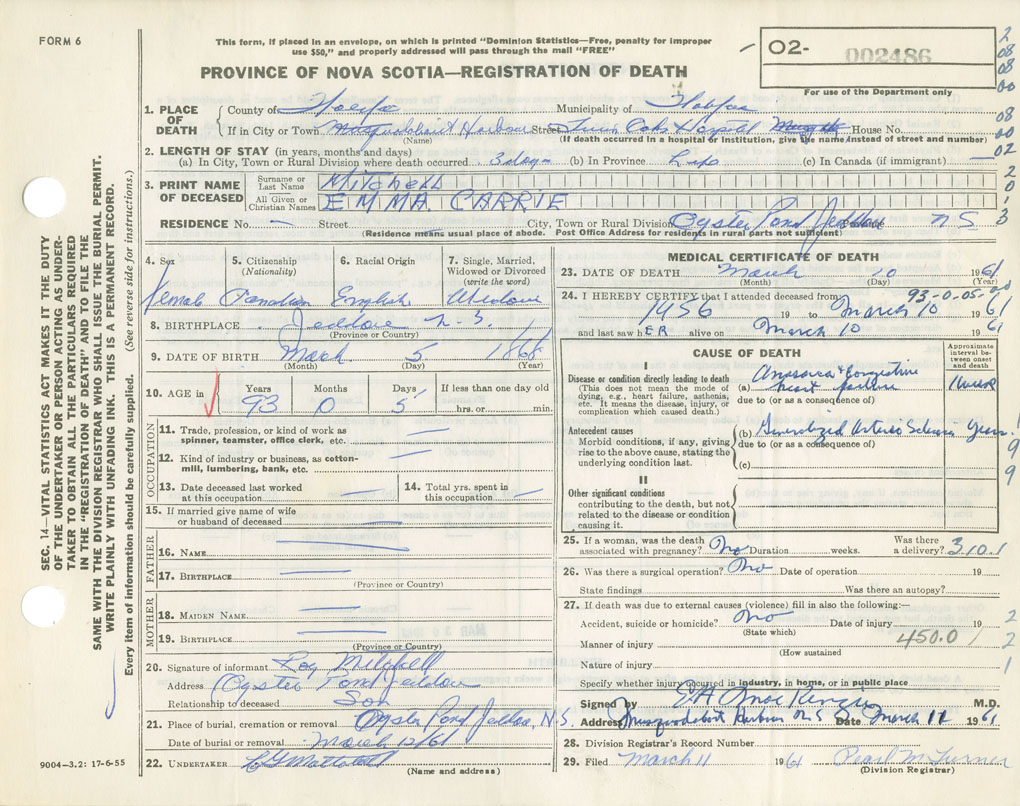 FORM 6
This form, if placed in an envelope, on which is printed "Dominion Statistics—Free, penalty for improper
use $50," and properly addressed will pass through the mail "FREE"
O2- 002486
For use of the Department only
PROVINCE OF NOVA SCOTIA—REGISTRATION OF DEATH
1. PLACE OF DEATH
County of Halifax Municipality of Halifax
If in City or Town Musquodoboit Harbour Street Twin Oaks Hospital House No.
(Name) (If death occurred in a hospital or institution, give the name instead of street and number)
2. LENGTH OF STAY (in years, months and days)
(a) In City, Town or Rural Division where death occurred 3 days (b) In Province Life (c) In Canada (if immigrant) —
3. PRINT NAME OF DECEASED
Surname or Last Name Mitchell
All Given or Christian Names EMMA CARRIE
RESIDENCE No. — Street City, Town or Rural Division Oyster Pond Jeddore N S
(Residence means usual place of abode. Post Office Address for residents in rural parts not sufficient)
4. Sex 5. Citizenship (Nationality) 6. Racial Origin 7. Single, Married, Widowed or Divorced (write the word)
Female Canadian English Widow
8. BIRTHPLACE Jeddore N.S.
(Province or Country)
9. DATE OF BIRTH March 5 1868
(Month) (Day) (Year)
10. AGE in Years Months Days If less than one day old
93 0 5 hrs. or min.
OCCUPATION
11. Trade, profession, or kind of work as spinner, teamster, office clerk, etc. —
12. Kind of industry or business, as cotton-mill, lumbering, bank, etc. —
13. Date deceased last worked at this occupation —
14. Total yrs. spent in this occupation —
15. If married give name of wife or husband of deceased —
FATHER
16. NAME —
17. BIRTHPLACE —
(Province or Country)
MOTHER
18. MAIDEN NAME —
19. BIRTHPLACE —
(Province or Country)
20. Signature of informant Roy Mitchell
Address Oyster Pond Jeddore
Relationship to deceased Son
21. Place of burial, cremation or removal Oyster Pond Jeddore, N.S.
Date of burial or removal March 12/61
22. UNDERTAKER
(Name and address)
MEDICAL CERTIFICATE OF DEATH
23. DATE OF DEATH March 10 1961
(Month) (Day) (Year)
93-0-05-
24. I HEREBY CERTIFY that I attended deceased from
1956 19 to March 10 1961
and last saw hER alive on March 10 1961
CAUSE OF DEATH
Approximate interval between onset and death
I
Disease or condition directly leading to death
(This does not mean the mode of dying, e.g., heart failure, asthenia, etc. It means the disease, injury, or complication which caused death.)
(a) Anasarca & Congestive heart failure 1 week
due to (or as a consequence of)
Antecedent causes
Morbid conditions, if any, giving rise to the above cause, stating the underlying condition last.
(b) Generalized Arterio Sclerosis Years
due to (or as a consequence of)
(c)
II
Other significant conditions
contributing to the death, but not related to the disease or condition causing it.
25. If a woman, was the death associated with pregnancy? No Duration weeks. Was there a delivery?
3101
26. Was there a surgical operation? No Date of operation 19
State findings Was there an autopsy?
27. If death was due to external causes (violence) fill in also the following:—
Accident, suicide or homicide? No Date of injury 19
(State which)
Manner of injury 450.0
(How sustained
Nature of injury
Specify whether injury occurred in industry, in home, or in public place
Signed by M.D.
Address Musquodoboit Harbour N S Date March 11 1961
28. Division Registrar's Record Number
29. Filed March 11 1961 Pearl M Turner
(Division Registrar)
SEC. 14—VITAL STATISTICS ACT MAKES IT THE DUTY
OF THE UNDERTAKER OR PERSON ACTING AS UNDER-
TAKER TO OBTAIN ALL THE PARTICULARS REQUIRED
IN THE "REGISTRATION OF DEATH" AND FILE THE
SAME WITH THE DIVISION REGISTRAR WHO SHALL ISSUE THE BURIAL PERMIT.
WRITE PLAINLY WITH UNFADING INK. THIS IS A PERMANENT RECORD.
Every item of information should be carefully supplied. (See reverse side for instructions.)
9004-3.2: 17-6-55
2
08
08
00
08
00
02
2
0
1
3
9
9
2
2
1